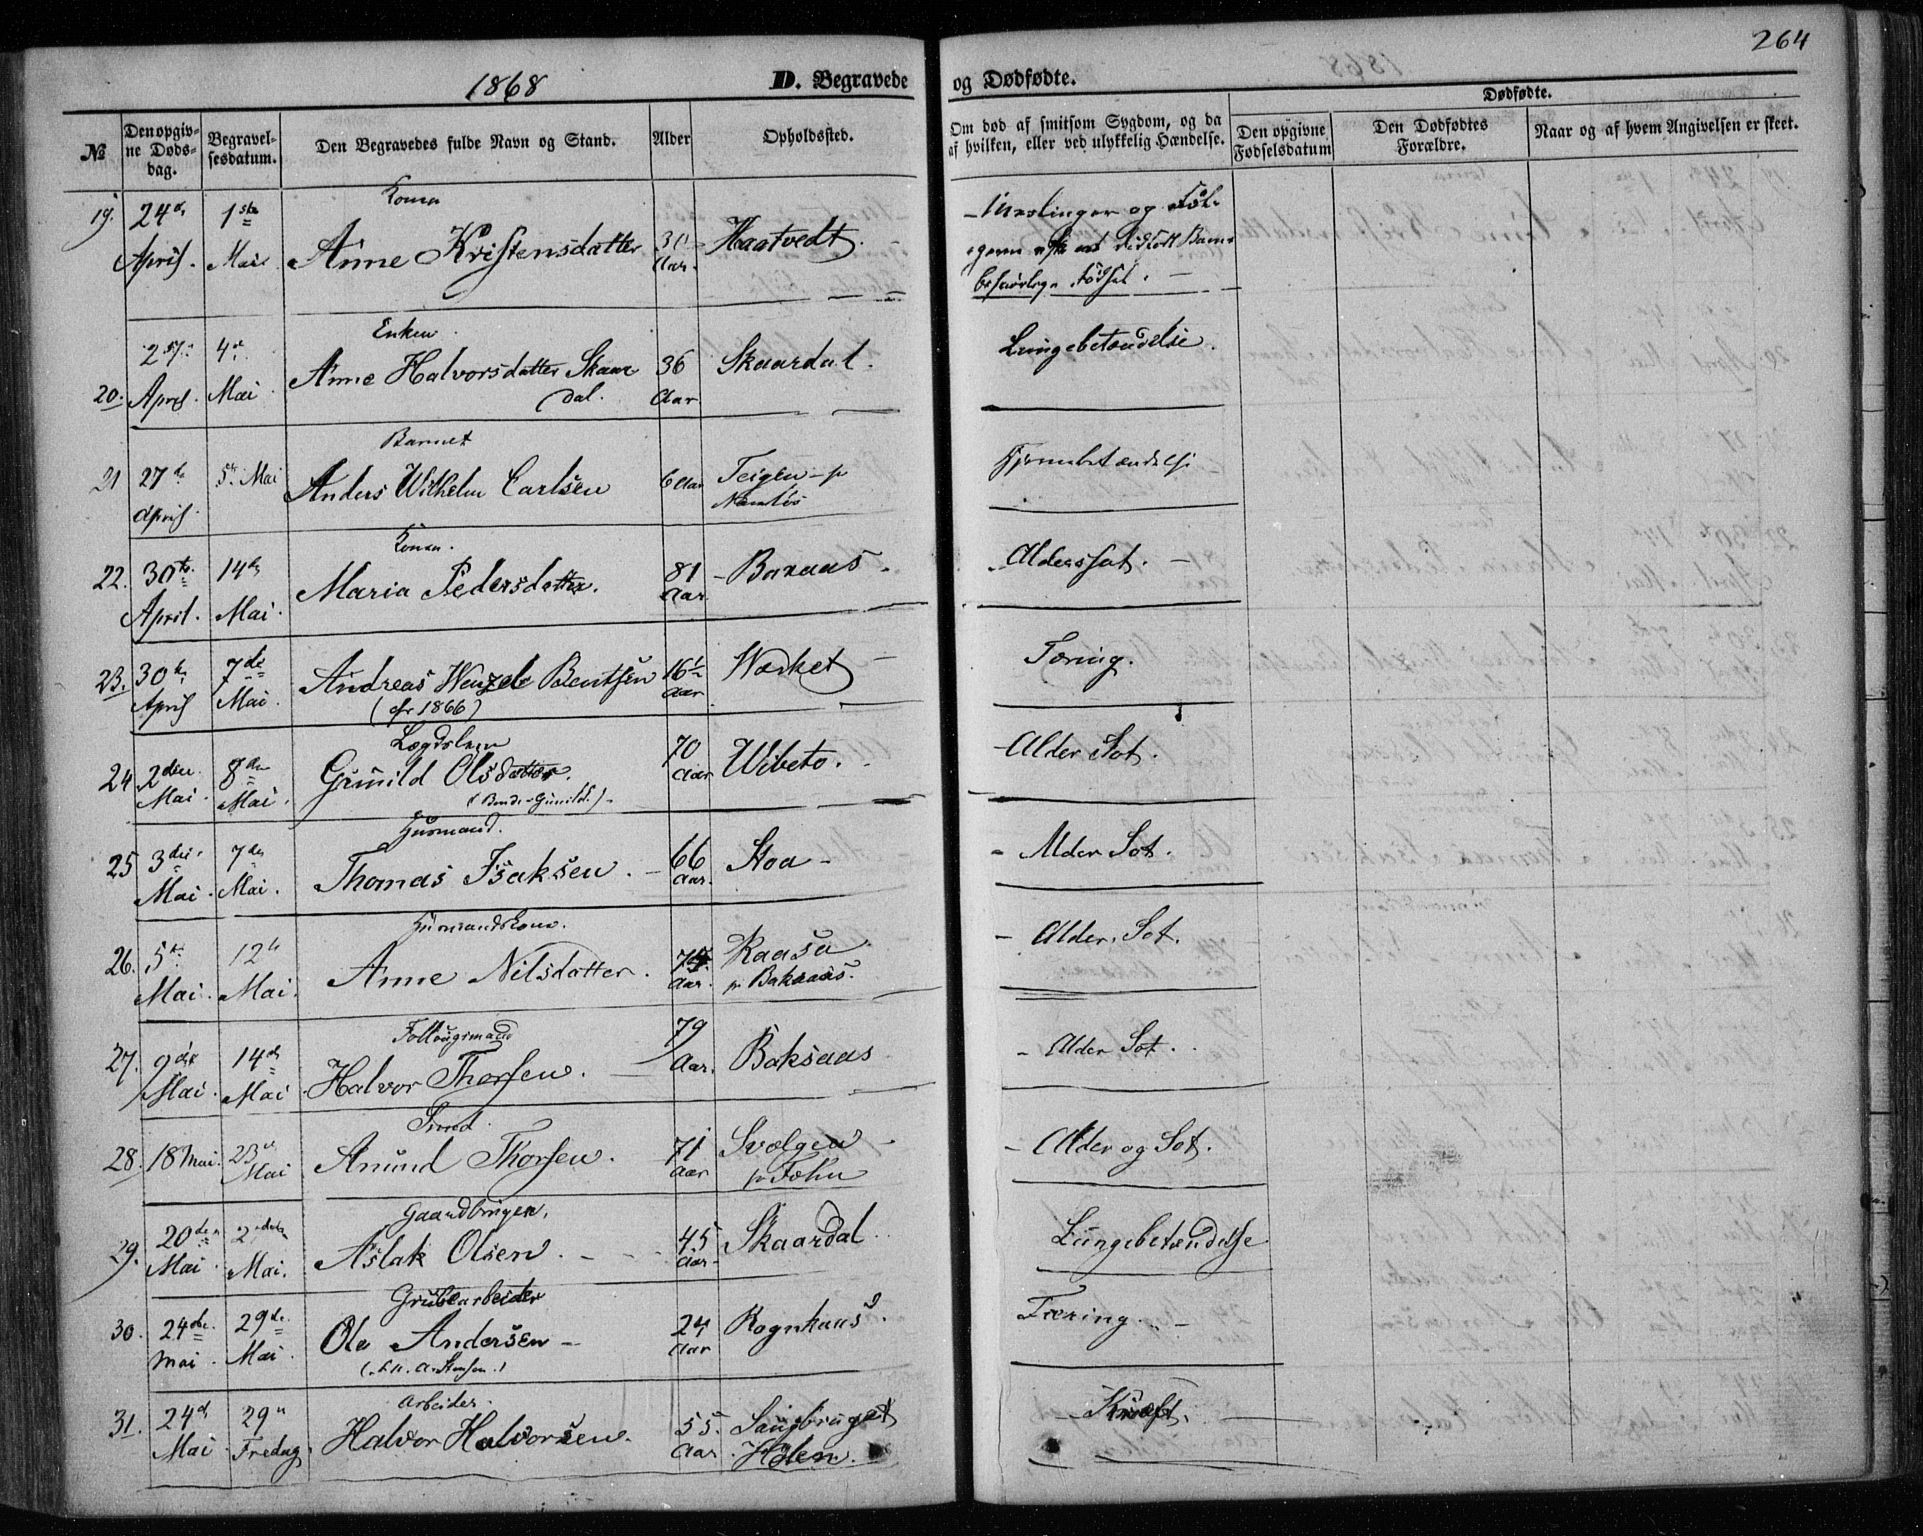 264
1868
D. Begravede og Dødfødte.
Dødfødte.
№
Den opgivne Dødsdag.
Begravelsesdatum.
Den Begravedes fulde Navn og Stand.
Alder
Opholdssted.
Om død af smitsom Sygdom, og da af hvilken, eller ved ulykkelig Hændelse.
Den opgivne Fødselsdatum
Den Dødfødtes Forældre.
Naar og af hvem Angivelsen er skeet.
Kona
19. 24de 1ste Anne Kristensdatter 30 Haatvedt. - Mæslinger og Føl-
April. Mai. Aar. Barns
Fødsel.
Enken
27 4de Anne Halvorsdatter Skaar 36 Skaardal. Lungebetændelse.
20. April. Mai dal. Aar
Barnet
21 27de 5te Mai Anders Wilhelm Carlsen 6 Aar Teigen p
April Hjernebetændelse
Kona.
22. 30te 14de Maria Pedersdatter. 81 Baraas. Alderssot.
April. Mai. Aar
23. 30te 7de Andreas Wenzel Bentsen 16½ Værket Tæring.
April Mai. (cfr 1866) Aar
Lægdslem
24 2den 8de Gunild Olsdatter. 70 Wibeto. Alder Sot.
Mai. Mai. Aar
Husmand.
25 3die 7de Thomas Isaksen. 66 Stoa - Alder Sot.
Mai. Mai. Aar.
Husmandskone.
26. 5te 12te Anne Nilsdatter. 74 Raasa - Alder Sot.
Mai. Mai. Aar. p Baksaas.
Folkaugsmand
27. 9de 14de Halvor Thorsen. 79 Baksaas - Alder Sot.
Mai. Mai Aar.
Smed.
28. 18 Mai. 23de Anund Thorsen. 71 Svalgen - Alder og Sot.
Mai Aar p Fohn
Gaardbruger.
29. 20de 2 Aslak Olsen. 45 Skaardal Lungebetændelse
Mai. Mai. Aar
Grubearbeider
30. 24de 29de Ole Andersen - 24 Rognhaug. Tæring.
Mai. Mai. Aar
Arbeider.
31. 24de 29 Halvor Halvorsen. 55. Saugbruget - Kræft.
Mai. Fredag. Aar. Holen.